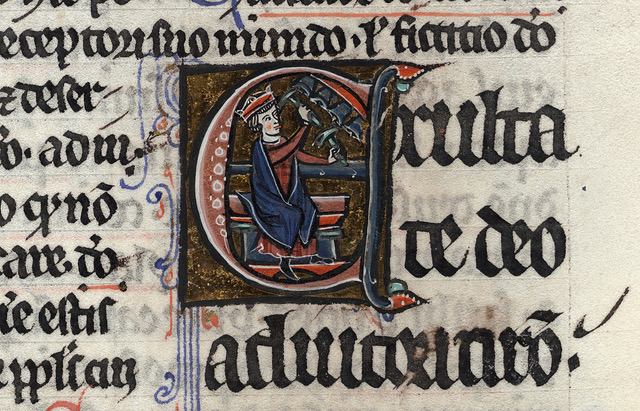 eceptori suo mundo. ł fictitio dō
⁊ deser
o. ad iu.
o qͥ nō
care. dō
estis
Exulta
te deo
adiutori nr̄o.